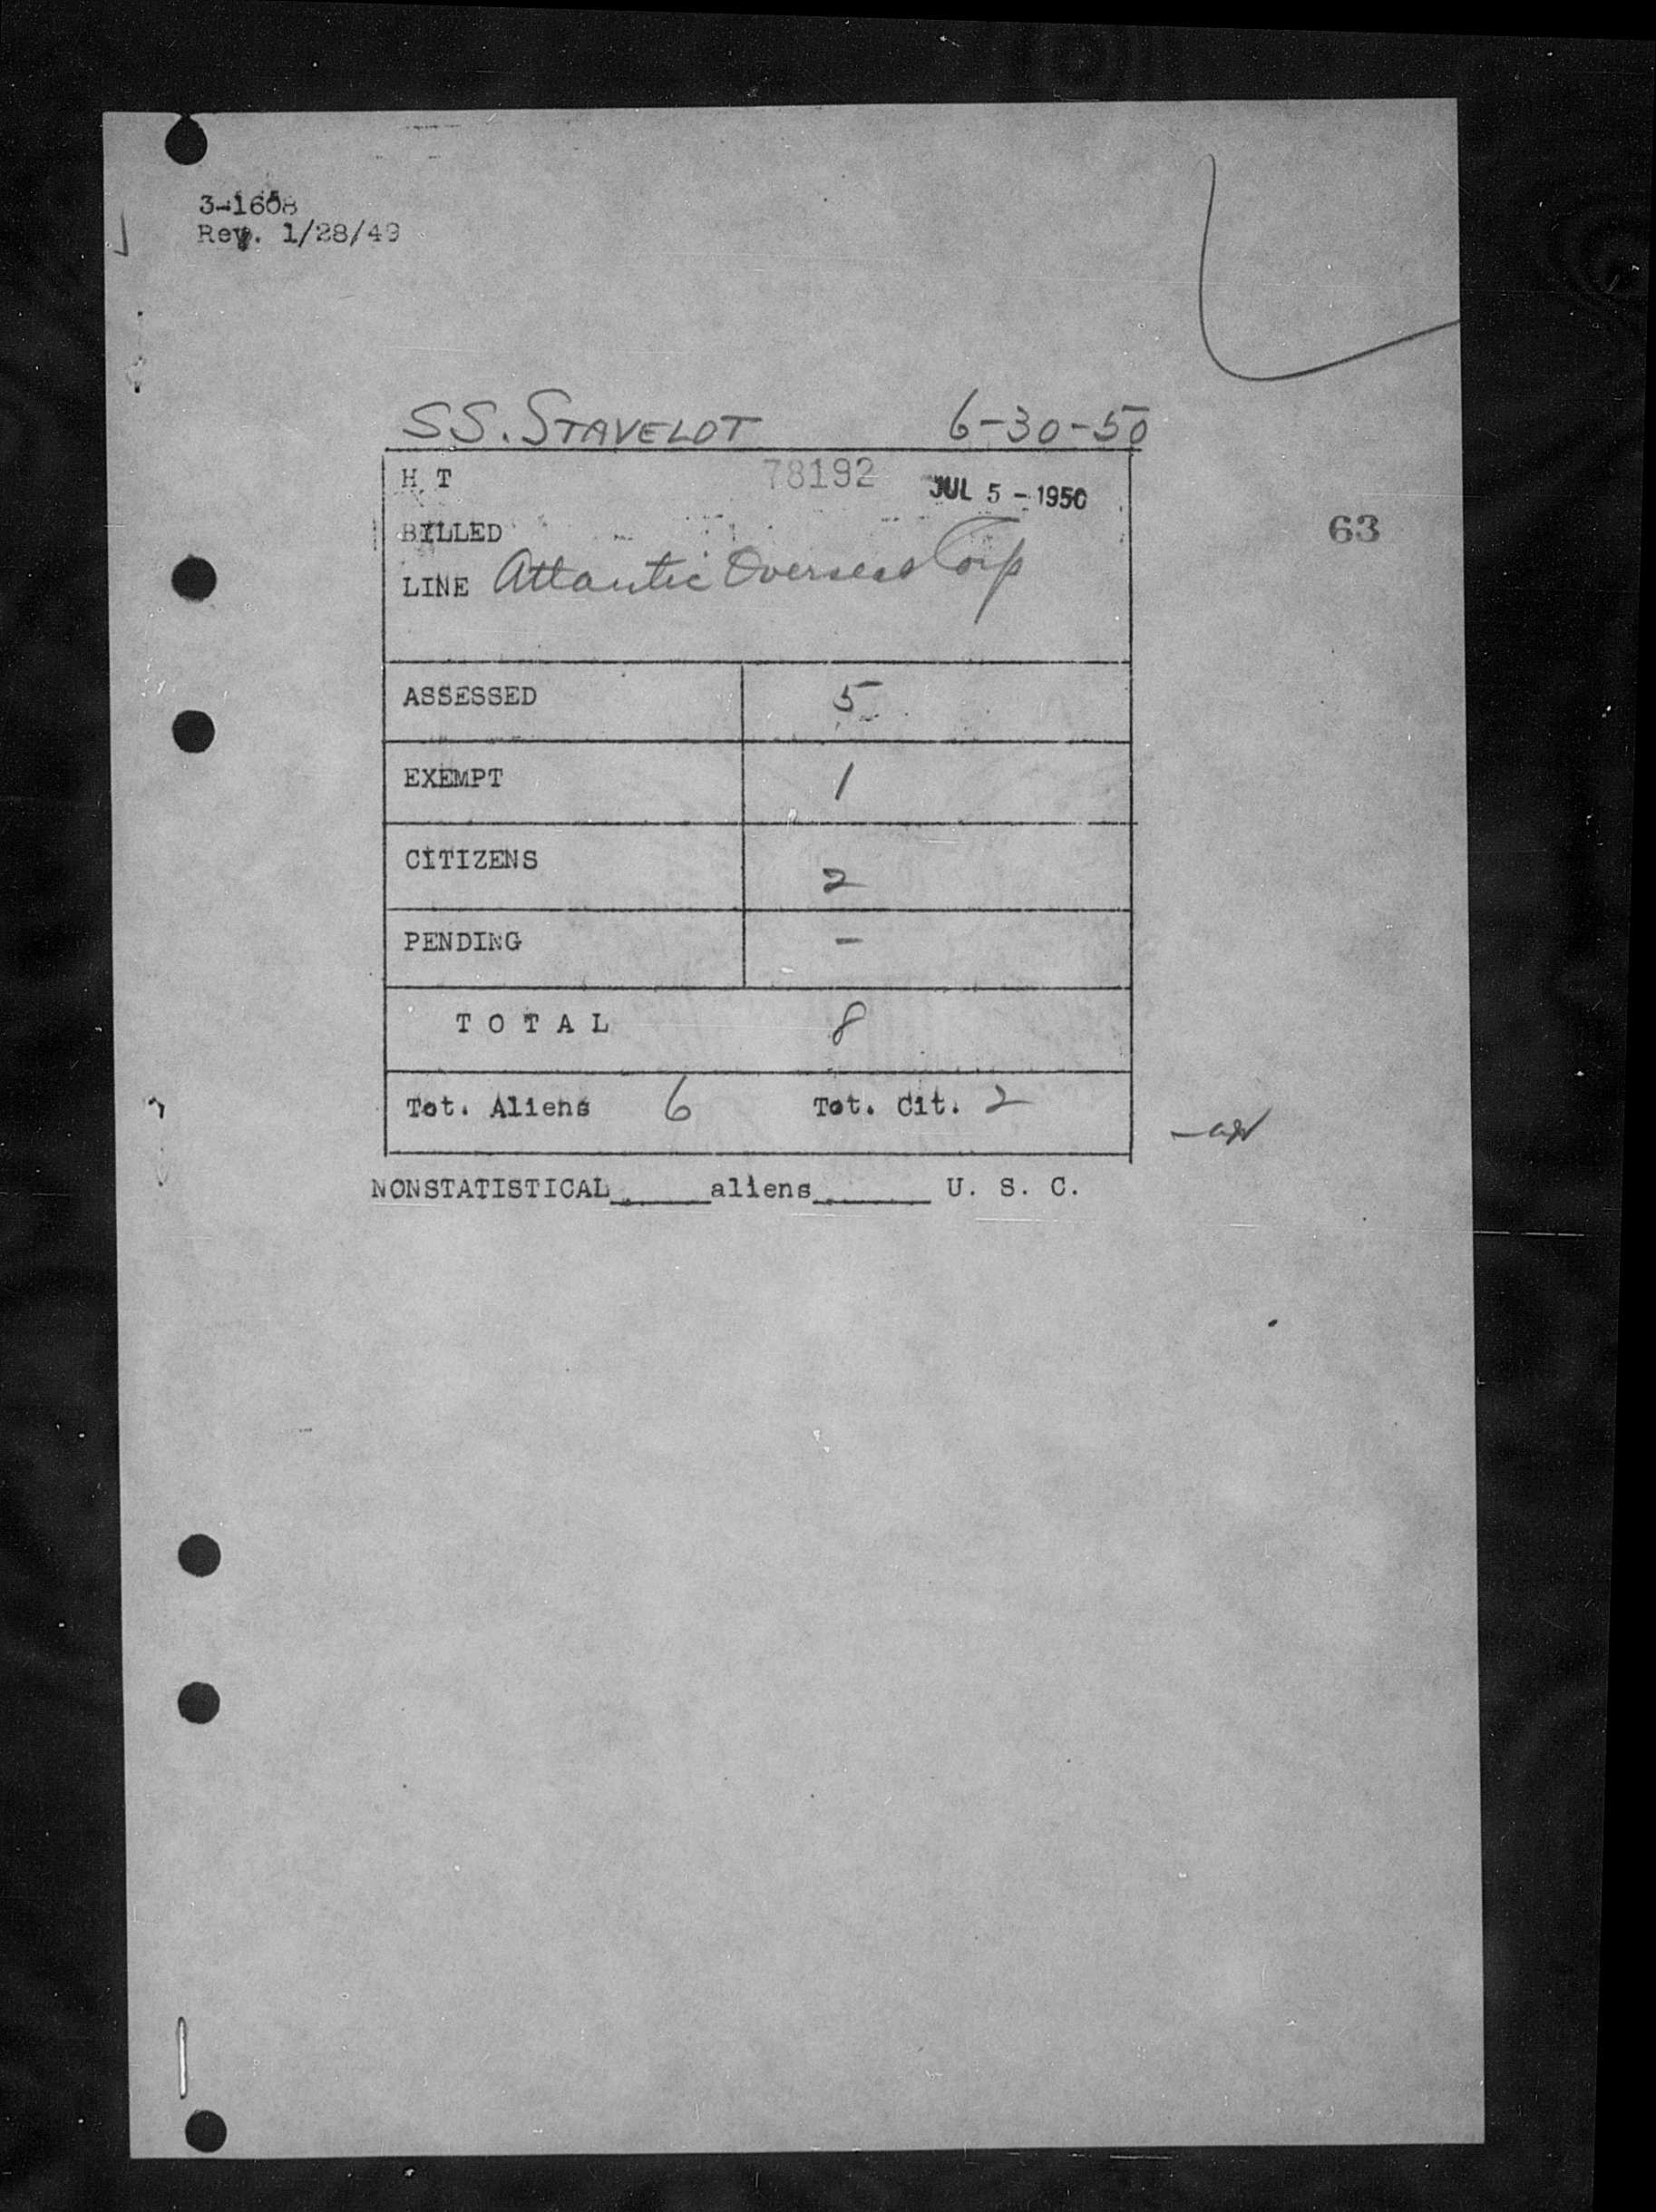 Rev. 1/28/49
SS. STAVELOT 6-30-50
H T 78192 JUL 5 - 1950
63
BILLED
LINE Atlantic Overseas Corp
ASSESSED 5
EXEMPT 1
CITIZENS 2
PENDING -
T O T A L 8
Tot. Aliens 6 Tot. Cit. 2
NONSTATISTICAL_____aliens______ U. S. C.